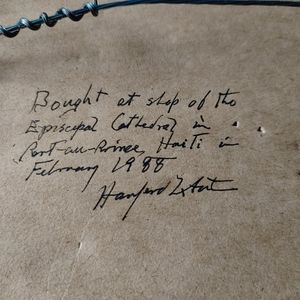 Bought at shop of the
Episcopal Cathedral in
Port-au-Prince, Haiti in
February 1988
Hanford